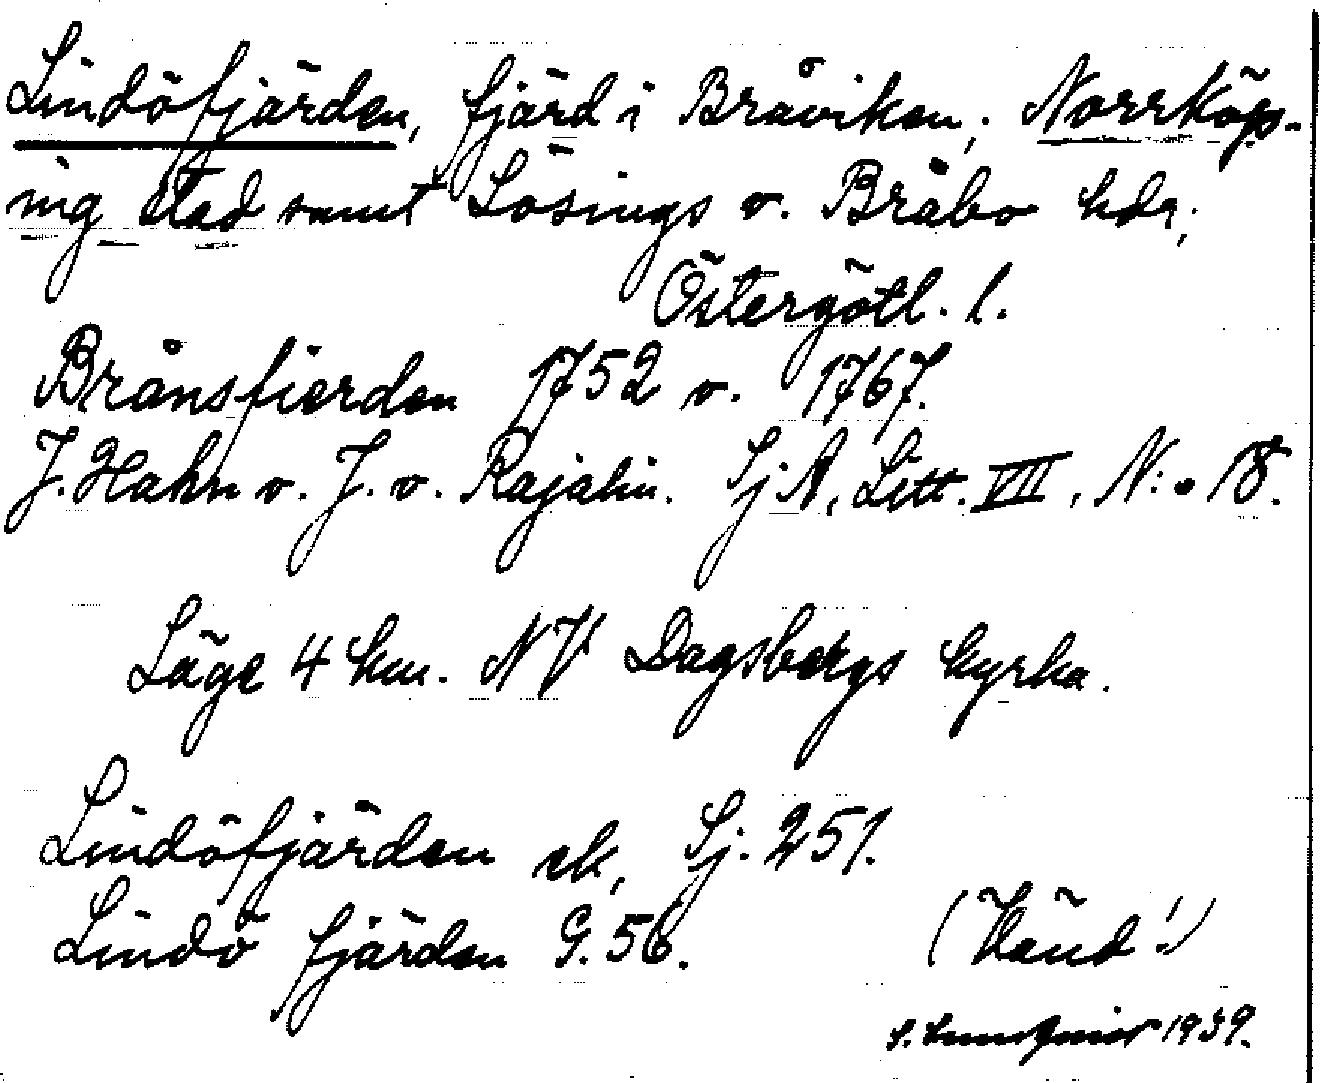 Lindöfjärden, fjärd i Bråviken; Norrköp-
ing stad samt Lösings o. Bråbo hdr;
Östergötl. l.
Brånsfierden 1752 o. 1767.
J. Hahn o. J. v. Rajalin. SjA, Litt. VII, N:o 18.
Läge 4 km. NV Dagsbergs kyrka.
Lindöfjärden ek, Sj. 251.
Lindö fjärden G. 56. (Vänd!)
S. 1939.